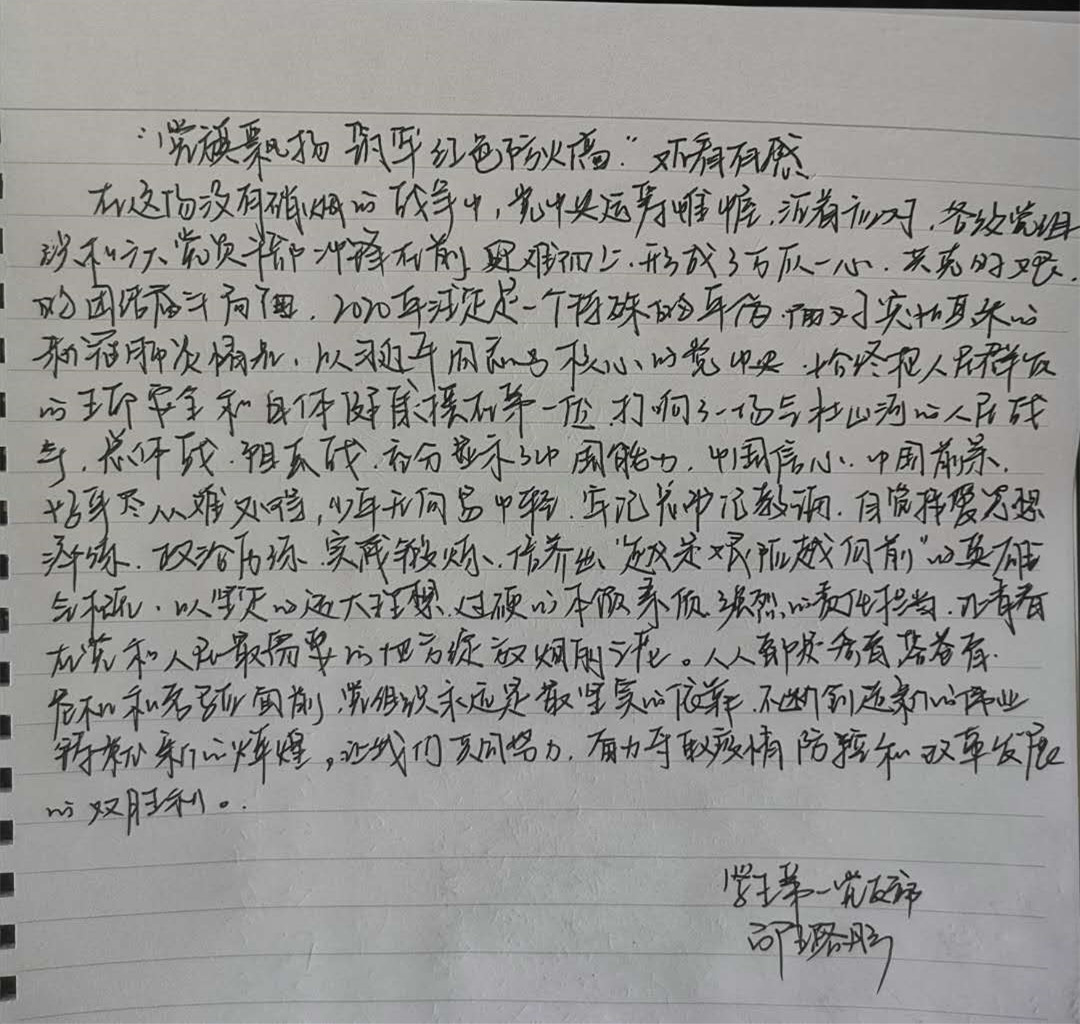 "党旗飘扬 筑牢红色防火墙"观看有感
在这场没有硝烟的战争中,党中央运筹帷幄,沉着应对,各级党组
织和广大党员干部冲锋在前,迎难而上,形成了万众一心、共克时艰
的团结奋斗局面,2020年注定是一个特殊的年份,面对突如其来的
新冠肺炎情况,以习近平同志为核心的党中央,始终把人民群众
的生命安全和身体健康摆在第一位,打响了一场气壮山河的人民战
争,总体战,阻击战,充分显示了中国能力,中国信心,中国前景,
从难 少年 牢记总书记教诲,自觉接受思想
淬炼、政治历练、实践锻炼、培养出"越是艰险越向前"的英雄
气概,以坚定的远大理想、过硬的本领素质、强烈的责任担当,让青春
在党和人民最需要的地方绽放绚丽之花。人人都是
危机和 面前,党组织永远是最坚实的依靠,不断创造新的伟业
新的辉煌,让我们共同努力,奋力夺取疫情防控和改革发展
的双胜利。
学生第一党支部